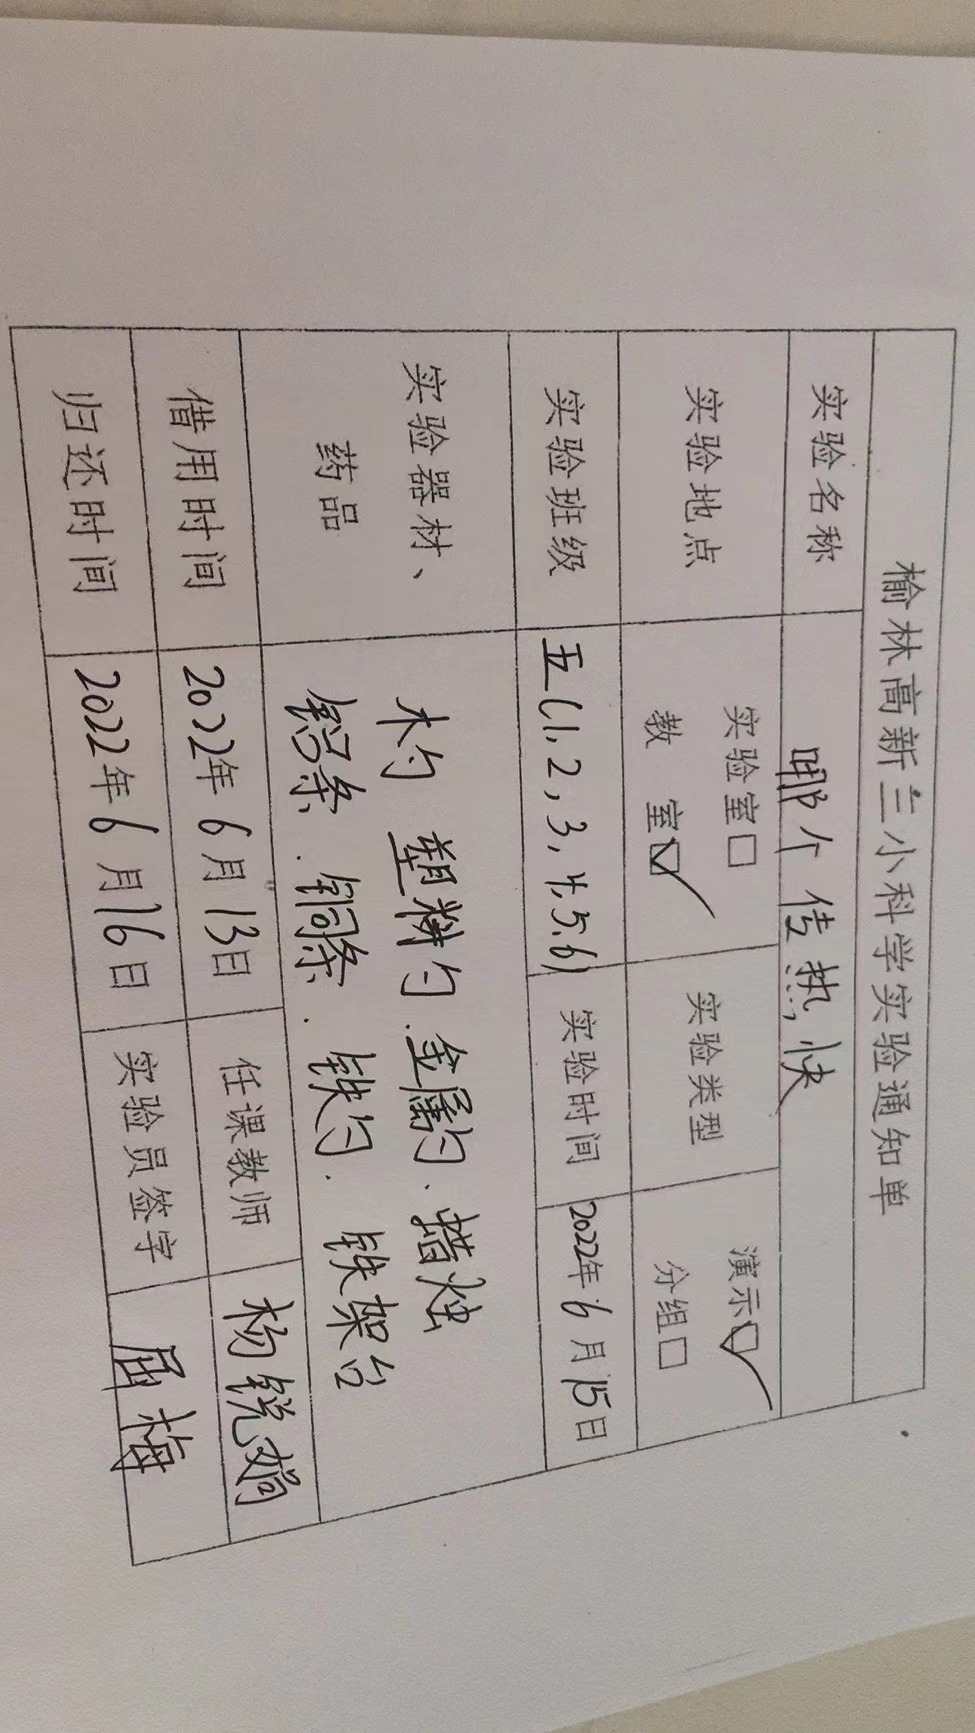 榆林高新三小科学实验通知单
实验名称 哪个传热快
实验地点 实验室□ 教 室☑ 实验类型 演示☑ 分组□
实验班级 五(1,2,3,4,5,6) 实验时间 2022年6月15日
实验器材、药品 木勺 塑料勺.金属勺.蜡烛
铝条.铜条.铁勺.铁架台
借用时间 2022年6月13日 任课教师 杨锐娟
归还时间 2022年6月16日 实验员签字 屈梅